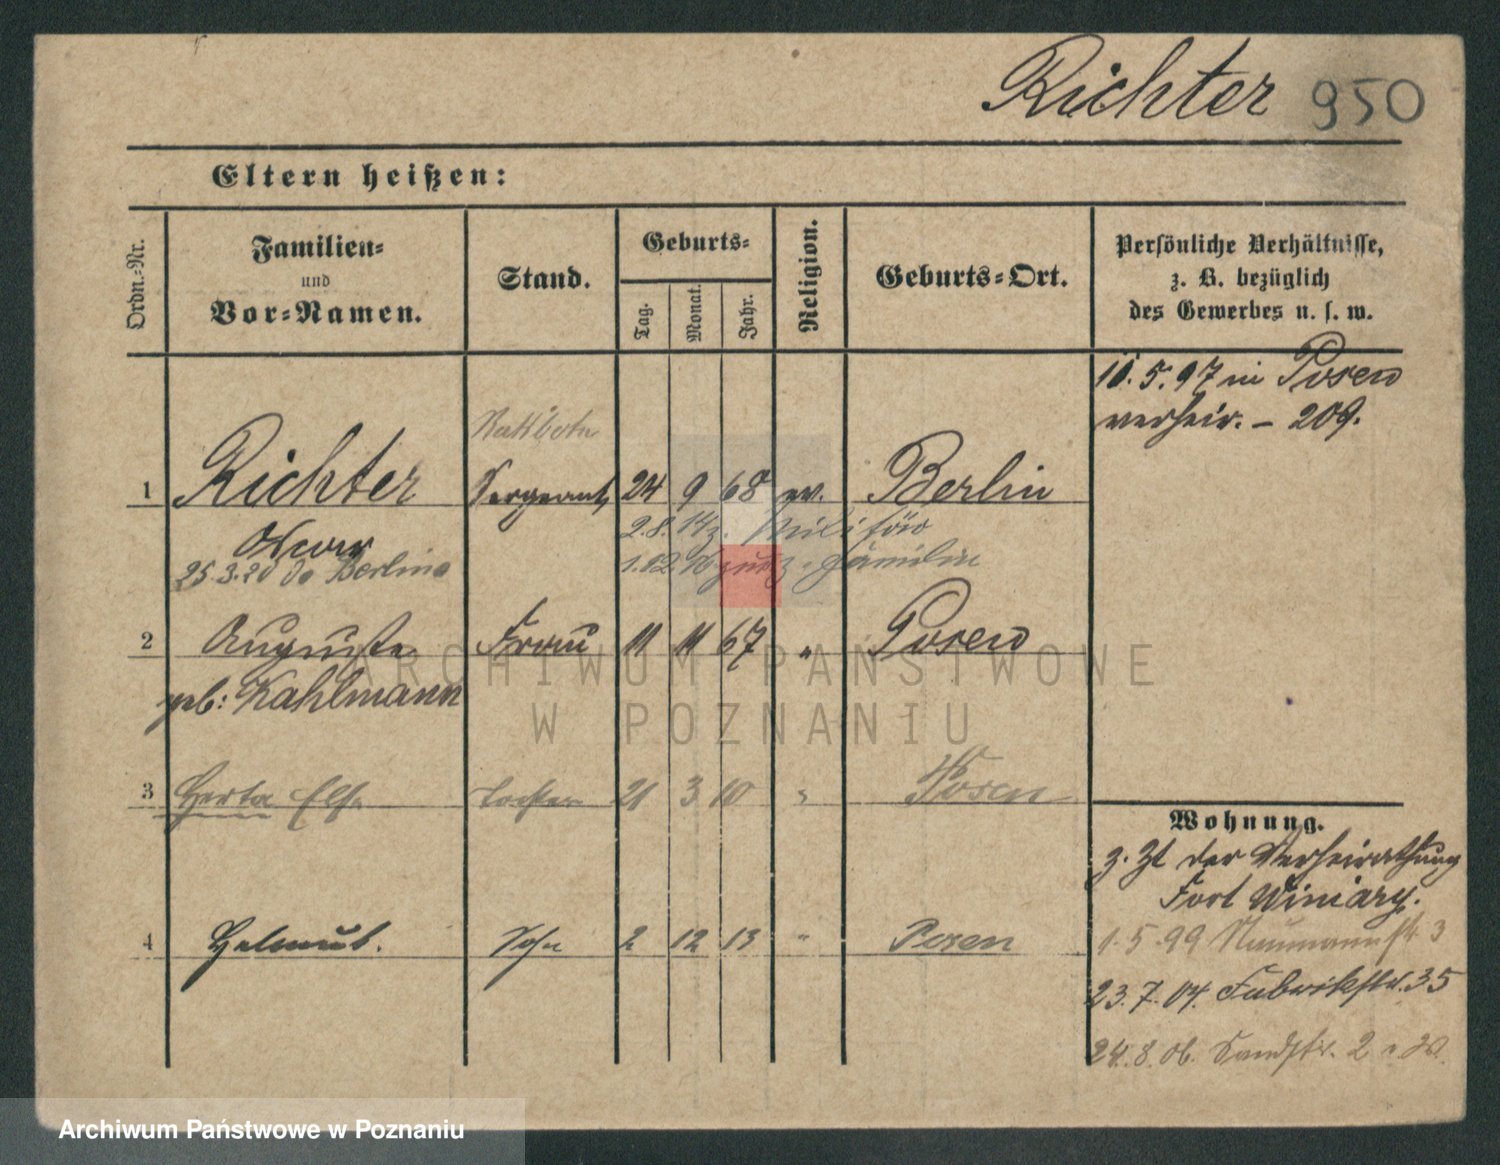 Richter 950
Eltern heißen:
Ordn.-Nr.
Familien-
und
Vor-Namen.
Stand.
Geburts-
Tag.
Monat.
Jahr.
Religion.
Geburts-Ort.
Persönliche Verhältnisse,
z. B. bezüglich
des Gewerbes u. s. w.
11. 5. 97 in Posen
verheir. – 209.
1 Richter Sergeant, 24 9 68 ev. Berlin
2.8.14 z. Militär
Oscar
25.3.20 Berlin
1.12. zurz. Familie
2 Auguste Frau 11 11 67 " Posen
geb: Kahlmann
3 Herta Else Tochter 21 3 10 " Posen
Wohnung.
z. Zt der Verheirathung
Fort Winiary.
4 Helmut. Sohn 2 12 13 " Posen
1.5.99 Naumannstr. 3
23.7.04. Fabrikstr. 35
24.8.06. Sandstr. 2
ARCHIWUM PAŃSTWOWE
W POZNANIU
Archiwum Państwowe w Poznaniu